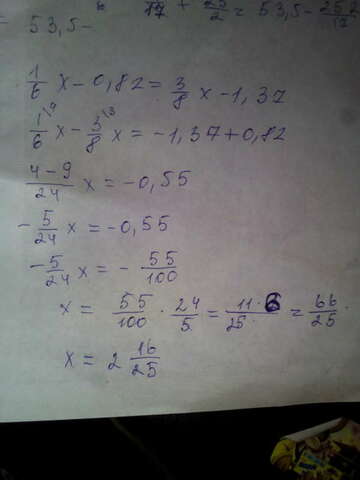 + 23/2 = 53,5 -
53,5-
1/6 x - 0,82 = 3/8 x - 1,37
1\4/6 x - 3\3/8 x = -1,37+0,82
4-9/24 x = -0,55
-5/24 x = -0,55
-5/24 x = - 55/100
x = 55/100 · 24/5 = 11·6/25· = 66/25
x = 2 16/25